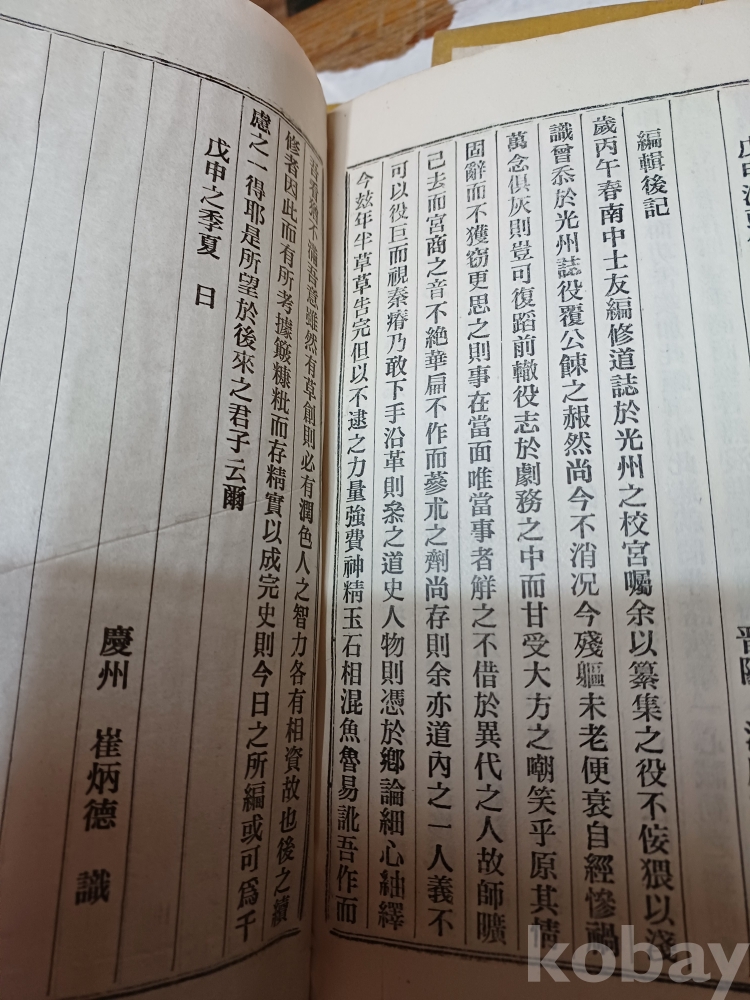 戊申
晋陽
編輯後記
歲丙午春南中士友編修道誌於光州之校宮囑余以纂集之役不佞猥以淺
識曾忝於光州誌役覆公餗之赧然尚今不消况今殘軀未老便衰自經慘禍
萬念俱灰則豈可復蹈前轍役志於劇務之中而甘受大方之嘲笑乎原其情
固辭而不獲竊更思之則事在當面唯當事者觧之不借於異代之人故師曠
己去而宮商之音不絶華扁不作而蔘朮之劑尚存則余亦道內之一人義不
可以役巨而視秦瘠乃敢下手沿革則叅之道史人物則憑於鄉論細心紬繹
今玆年半草草告完但以不逮之力量強費神精玉石相混魚魯易訛吾作而
吾看猶不滿吾意雖然有草創則必有潤色人之智力各有相資故也後之續
修者因此而有所考據簸糠粃而存精實以成完史則今日之所編或可爲千
慮之一得耶是所望於後來之君子云爾
戊申之季夏 日
慶州 崔炳德 識
kobay